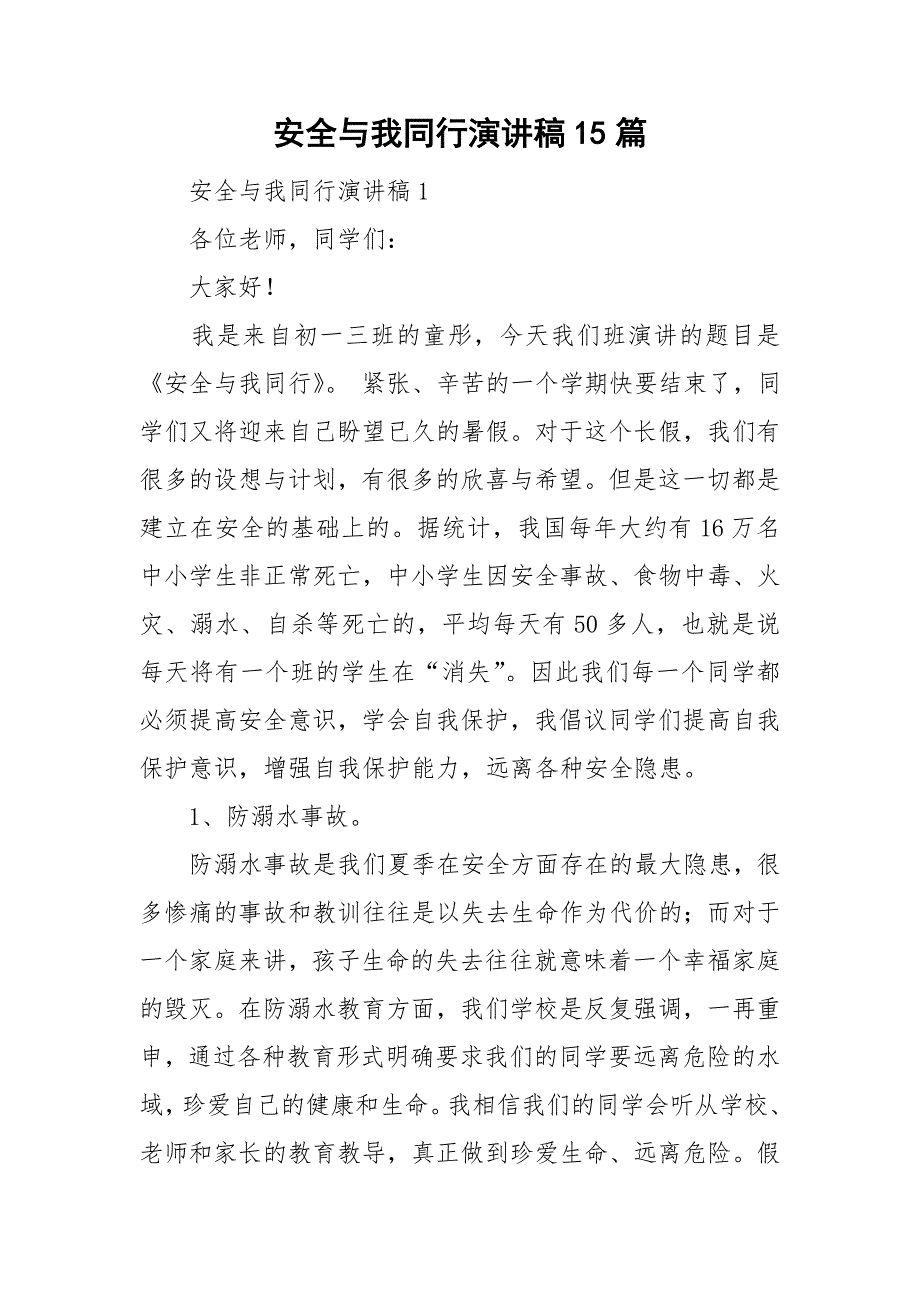 安全与我同行演讲稿15篇
安全与我同行演讲稿1
各位老师，同学们：
大家好！
我是来自初一三班的童彤，今天我们班演讲的题目是
《安全与我同行》。 紧张、辛苦的一个学期快要结束了，同
学们又将迎来自己盼望已久的暑假。对于这个长假，我们有
很多的设想与计划，有很多的欣喜与希望。但是这一切都是
建立在安全的基础上的。据统计，我国每年大约有16万名
中小学生非正常死亡，中小学生因安全事故、食物中毒、火
灾、溺水、自杀等死亡的，平均每天有50多人，也就是说
每天将有一个班的学生在“消失”。因此我们每一个同学都
必须提高安全意识，学会自我保护，我倡议同学们提高自我
保护意识，增强自我保护能力，远离各种安全隐患。
1、防溺水事故。
防溺水事故是我们夏季在安全方面存在的最大隐患，很
多惨痛的事故和教训往往是以失去生命作为代价的；而对于
一个家庭来讲，孩子生命的失去往往就意味着一个幸福家庭
的毁灭。在防溺水教育方面，我们学校是反复强调，一再重
申，通过各种教育形式明确要求我们的同学要远离危险的水
域，珍爱自己的健康和生命。我相信我们的同学会听从学校、
老师和家长的教育教导，真正做到珍爱生命、远离危险。假